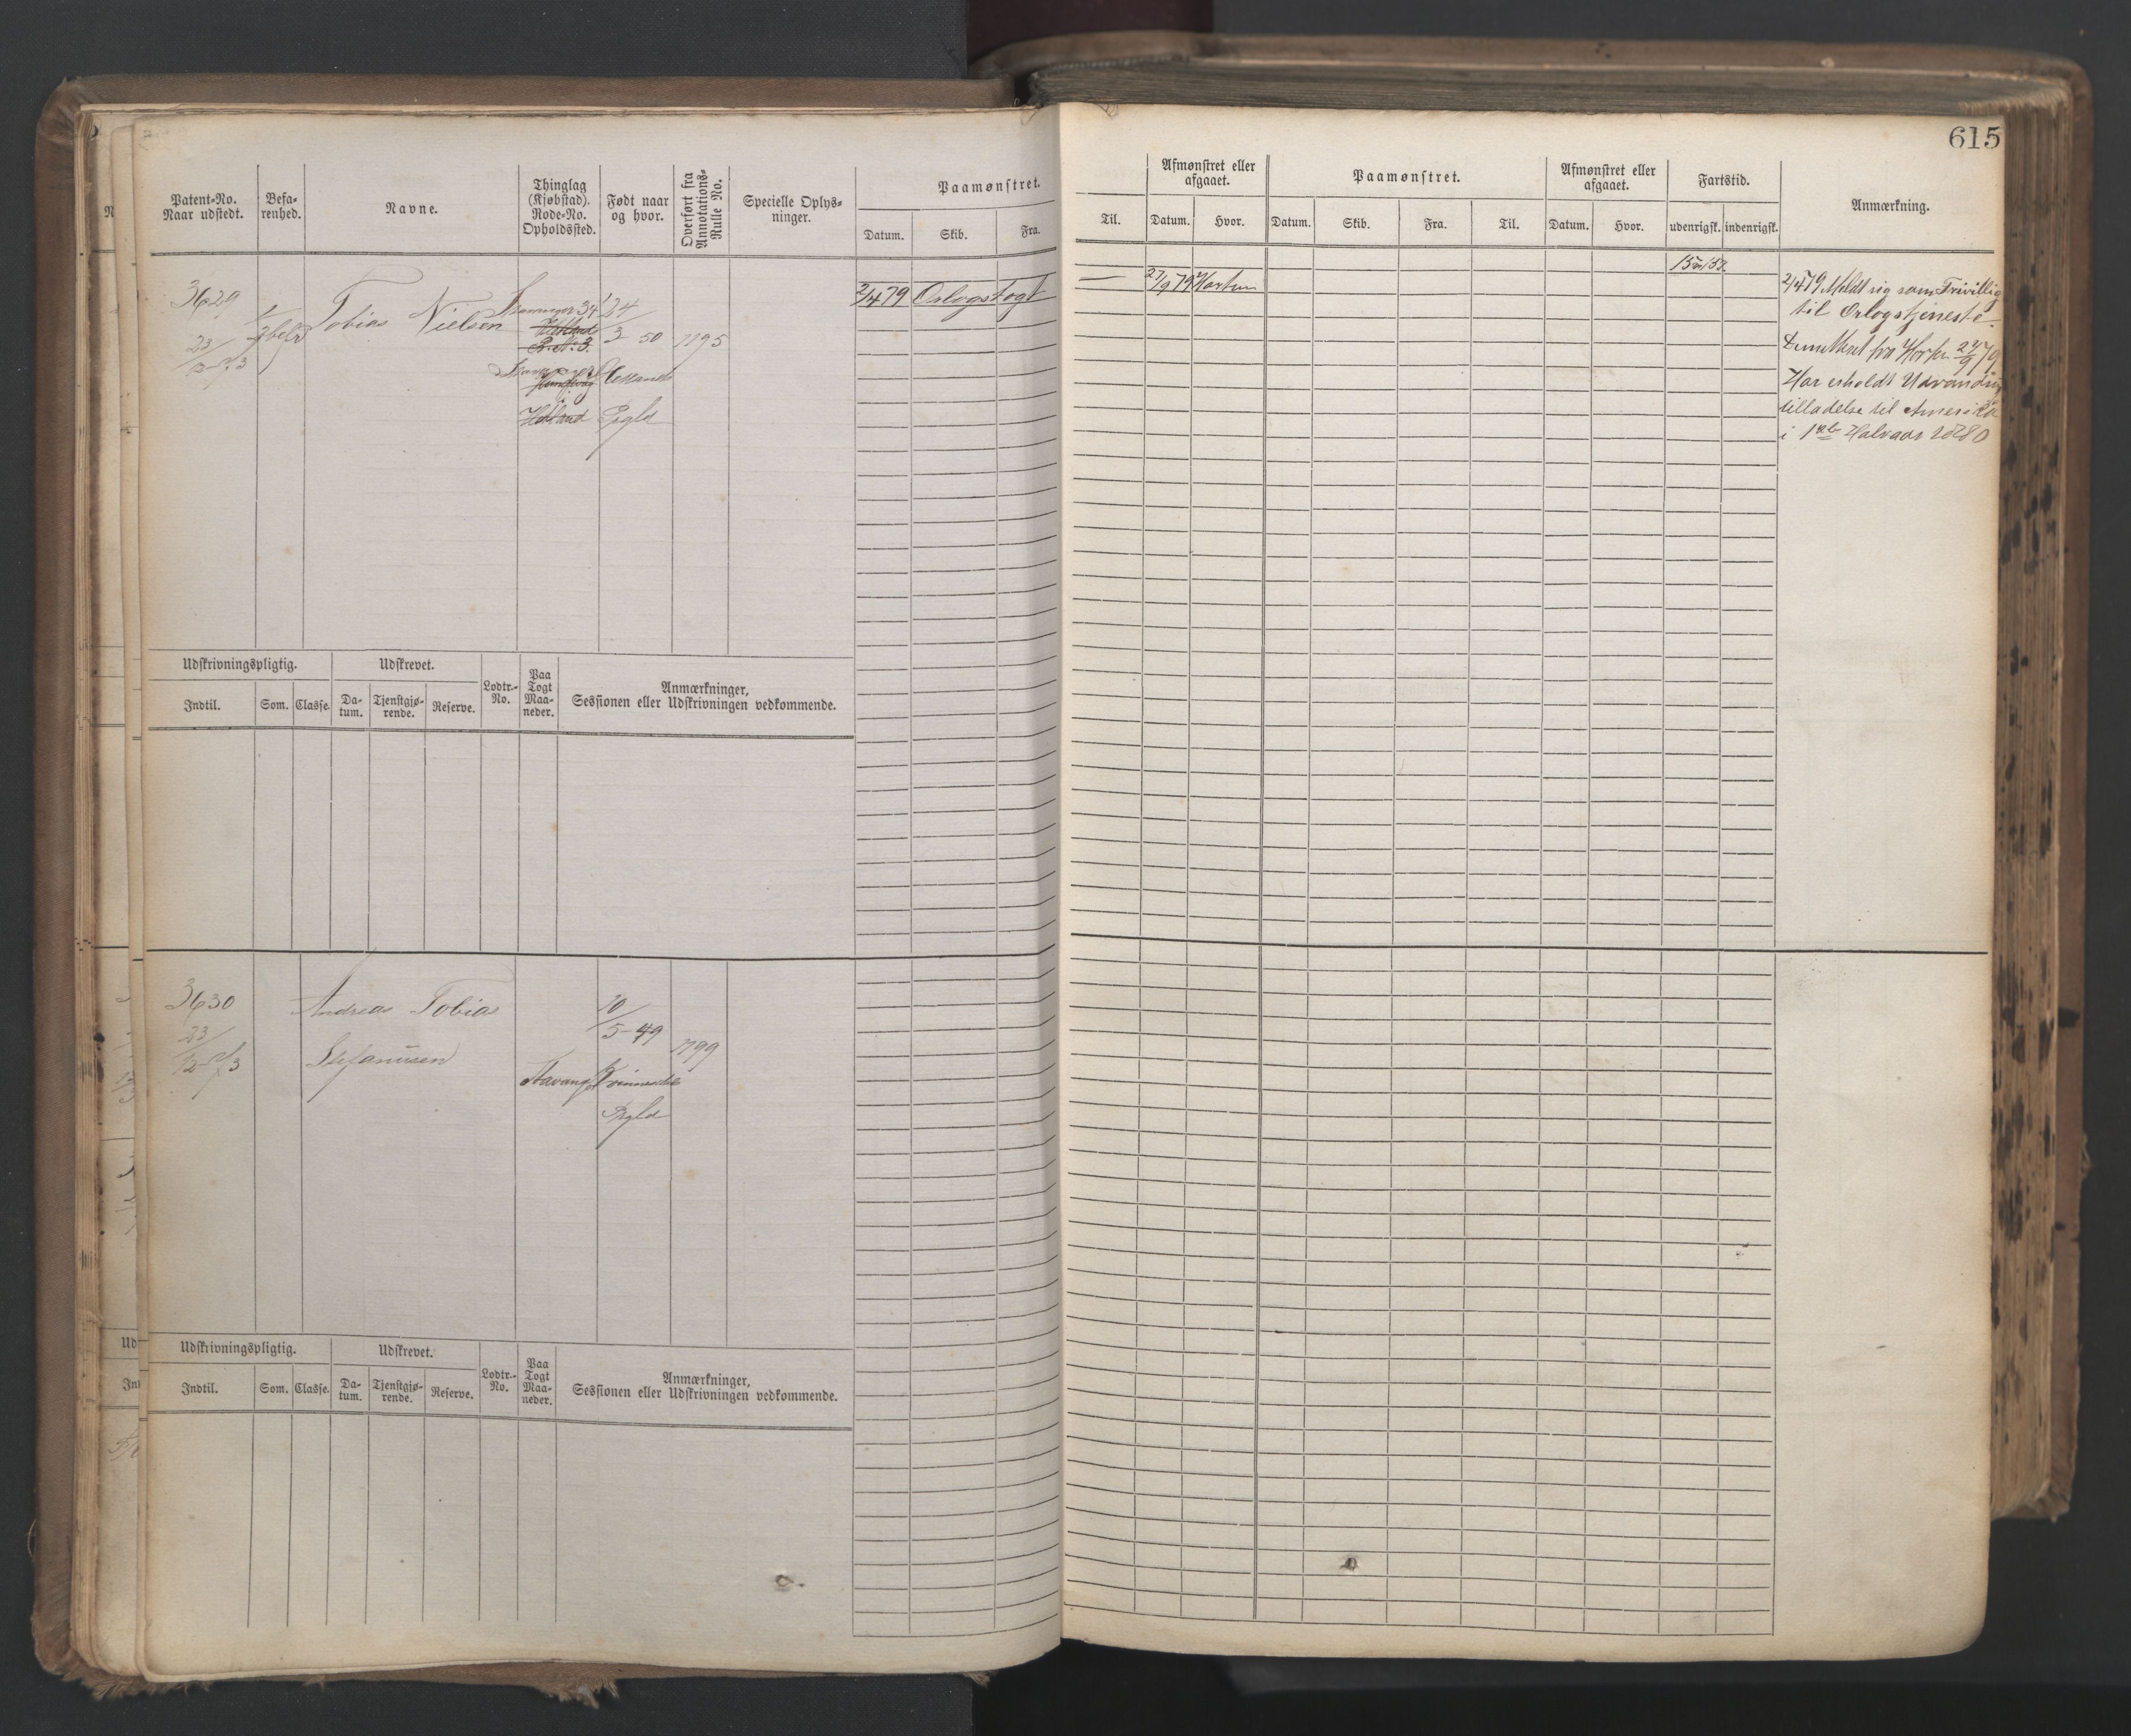 615
Patent-No.
Naar udstedt.
Befa-
renhed.
Navne.
Thinglag
(Kjøbstad).
Rode-No.
Opholdssted.
Født naar
og hvor.
Overført fra
Annotations-
Rulle No.
Specielle Oplys-
ninger.
Paamønstret.
Datum. Skib. Fra.
Til.
Afmønstret eller
afgaaet.
Datum. Hvor.
Paamønstret.
Datum. Skib. Fra. Til.
Afmønstret eller
afgaaet.
Datum. Hvor.
Fartstid.
udenrigsk. indenrigsk.
Anmærkning.
3629
23/12-73
Tobias Nielsen
24/3 50
Rgld
1795
2/4 79 Orlogstogt
27/9 79 Horten
2/4 79 Meldt sig som Frivillig
til Orlogstjeneste.
fra Horten 27/9 79
Har erholdt Udvandrings
tilladelse til Amerika
i 1ste Halvaar 1880
Udskrivningspligtig.
Indtil. Som. Classe.
Udskrevet.
Da-
tum.
Tjenstgjø-
rende.
Reserve.
Lodtr.-
No.
Paa
Togt
Maa-
neder.
Anmærkninger,
Sessionen eller Udskrivningen vedkommende.
3630
23/12-73
Andreas Tobias
Stefanusen
Stavanger
10/5-49
Rgld
1799
Udskrivningspligtig.
Indtil. Som. Classe.
Udskrevet.
Da-
tum.
Tjenstgjø-
rende.
Reserve.
Lodtr.-
No.
Paa
Togt
Maa-
neder.
Anmærkninger,
Sessionen eller Udskrivningen vedkommende.